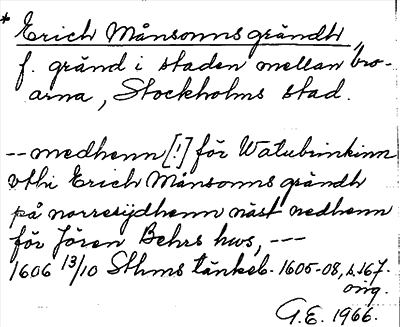 * Erich Månsonns grändh,
f. gränd i staden mellan bro-
arna, Stockholms stad.
-- medhenn [!] för Watubrinkinn
vthi Erich Månsonns grändh
på norresÿdhenn näst nedhenn
för Jören Behrs hws, ---
1606 13/10 Sthms tänkeb. 1605-08, s. 167.
orig.
G.E. 1966.